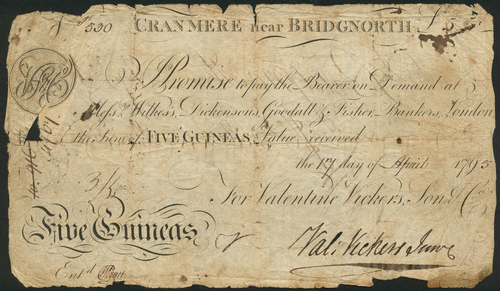 No 530 CRANMERE near BRIDGNORTH £5"5
I Promise to pay the Bearer on Demand at
Messrs Wilkes's, Dickenson's, Goodall & Fisher, Bankers, London
the Sum of FIVE GUINEAS Value received
the 17 day of April 1795
For Valentine Vickers, Son & Co
Five Guineas
Val: Vickers Junr
Entd